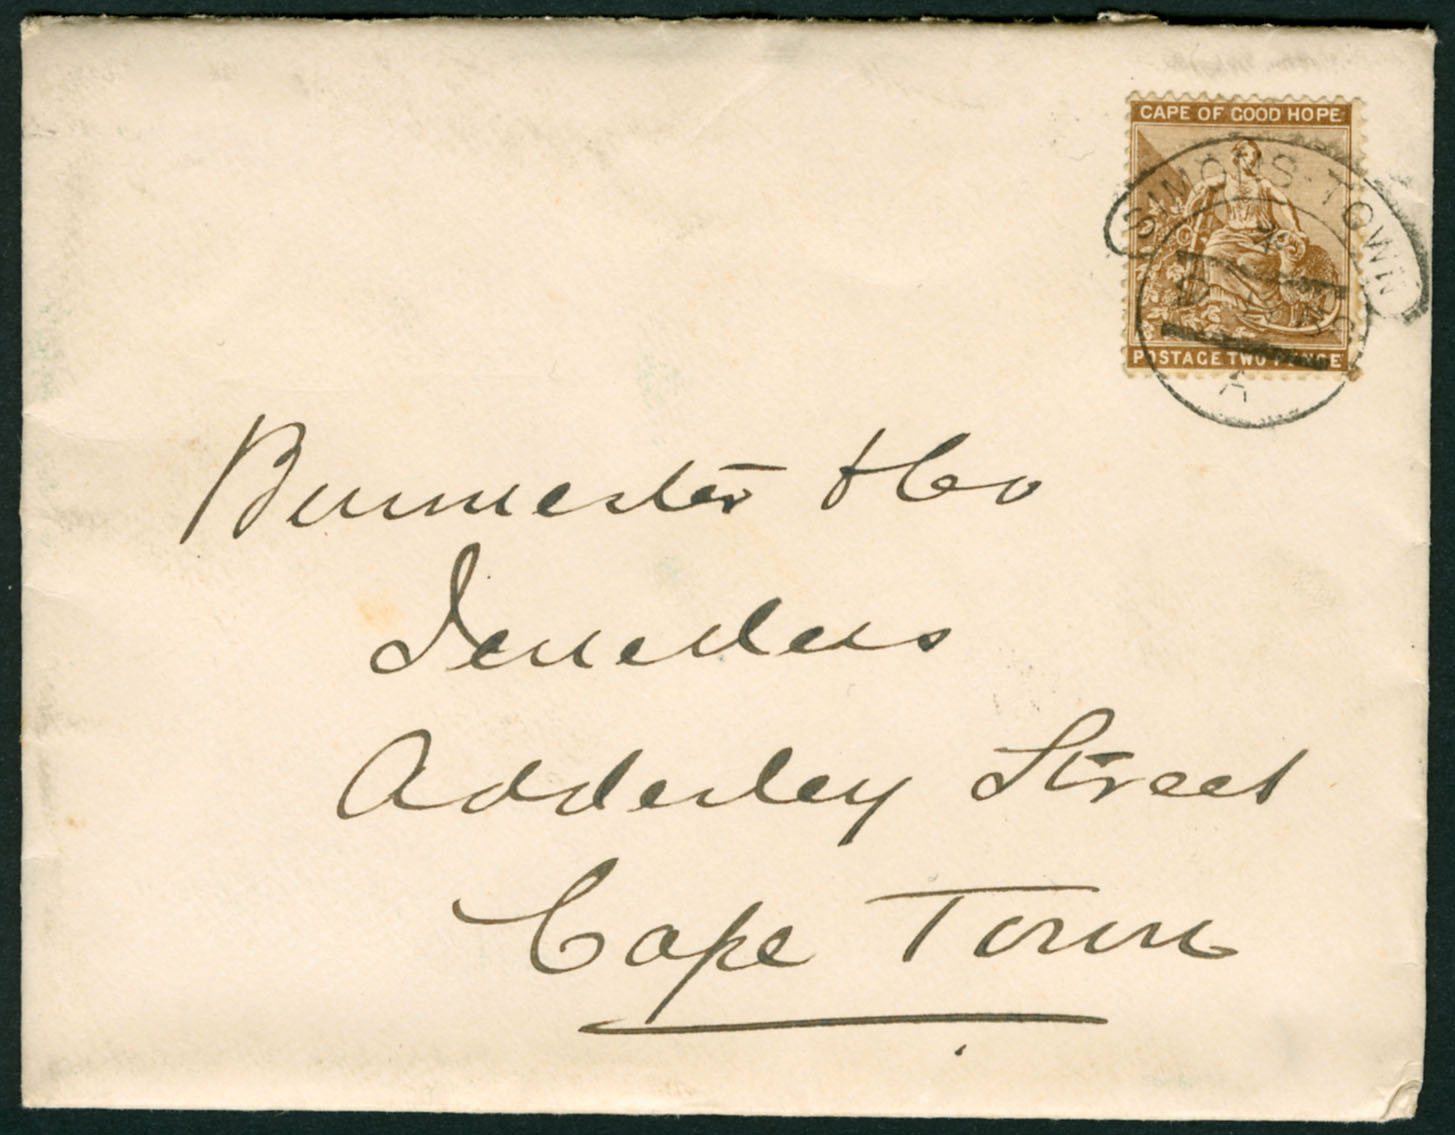 CAPE OF GOOD HOPE
SIMONS-TOWN
POSTAGE TWO PENCE
A
Burmester & Co
Jewellers
Adderley Street
Cape Town